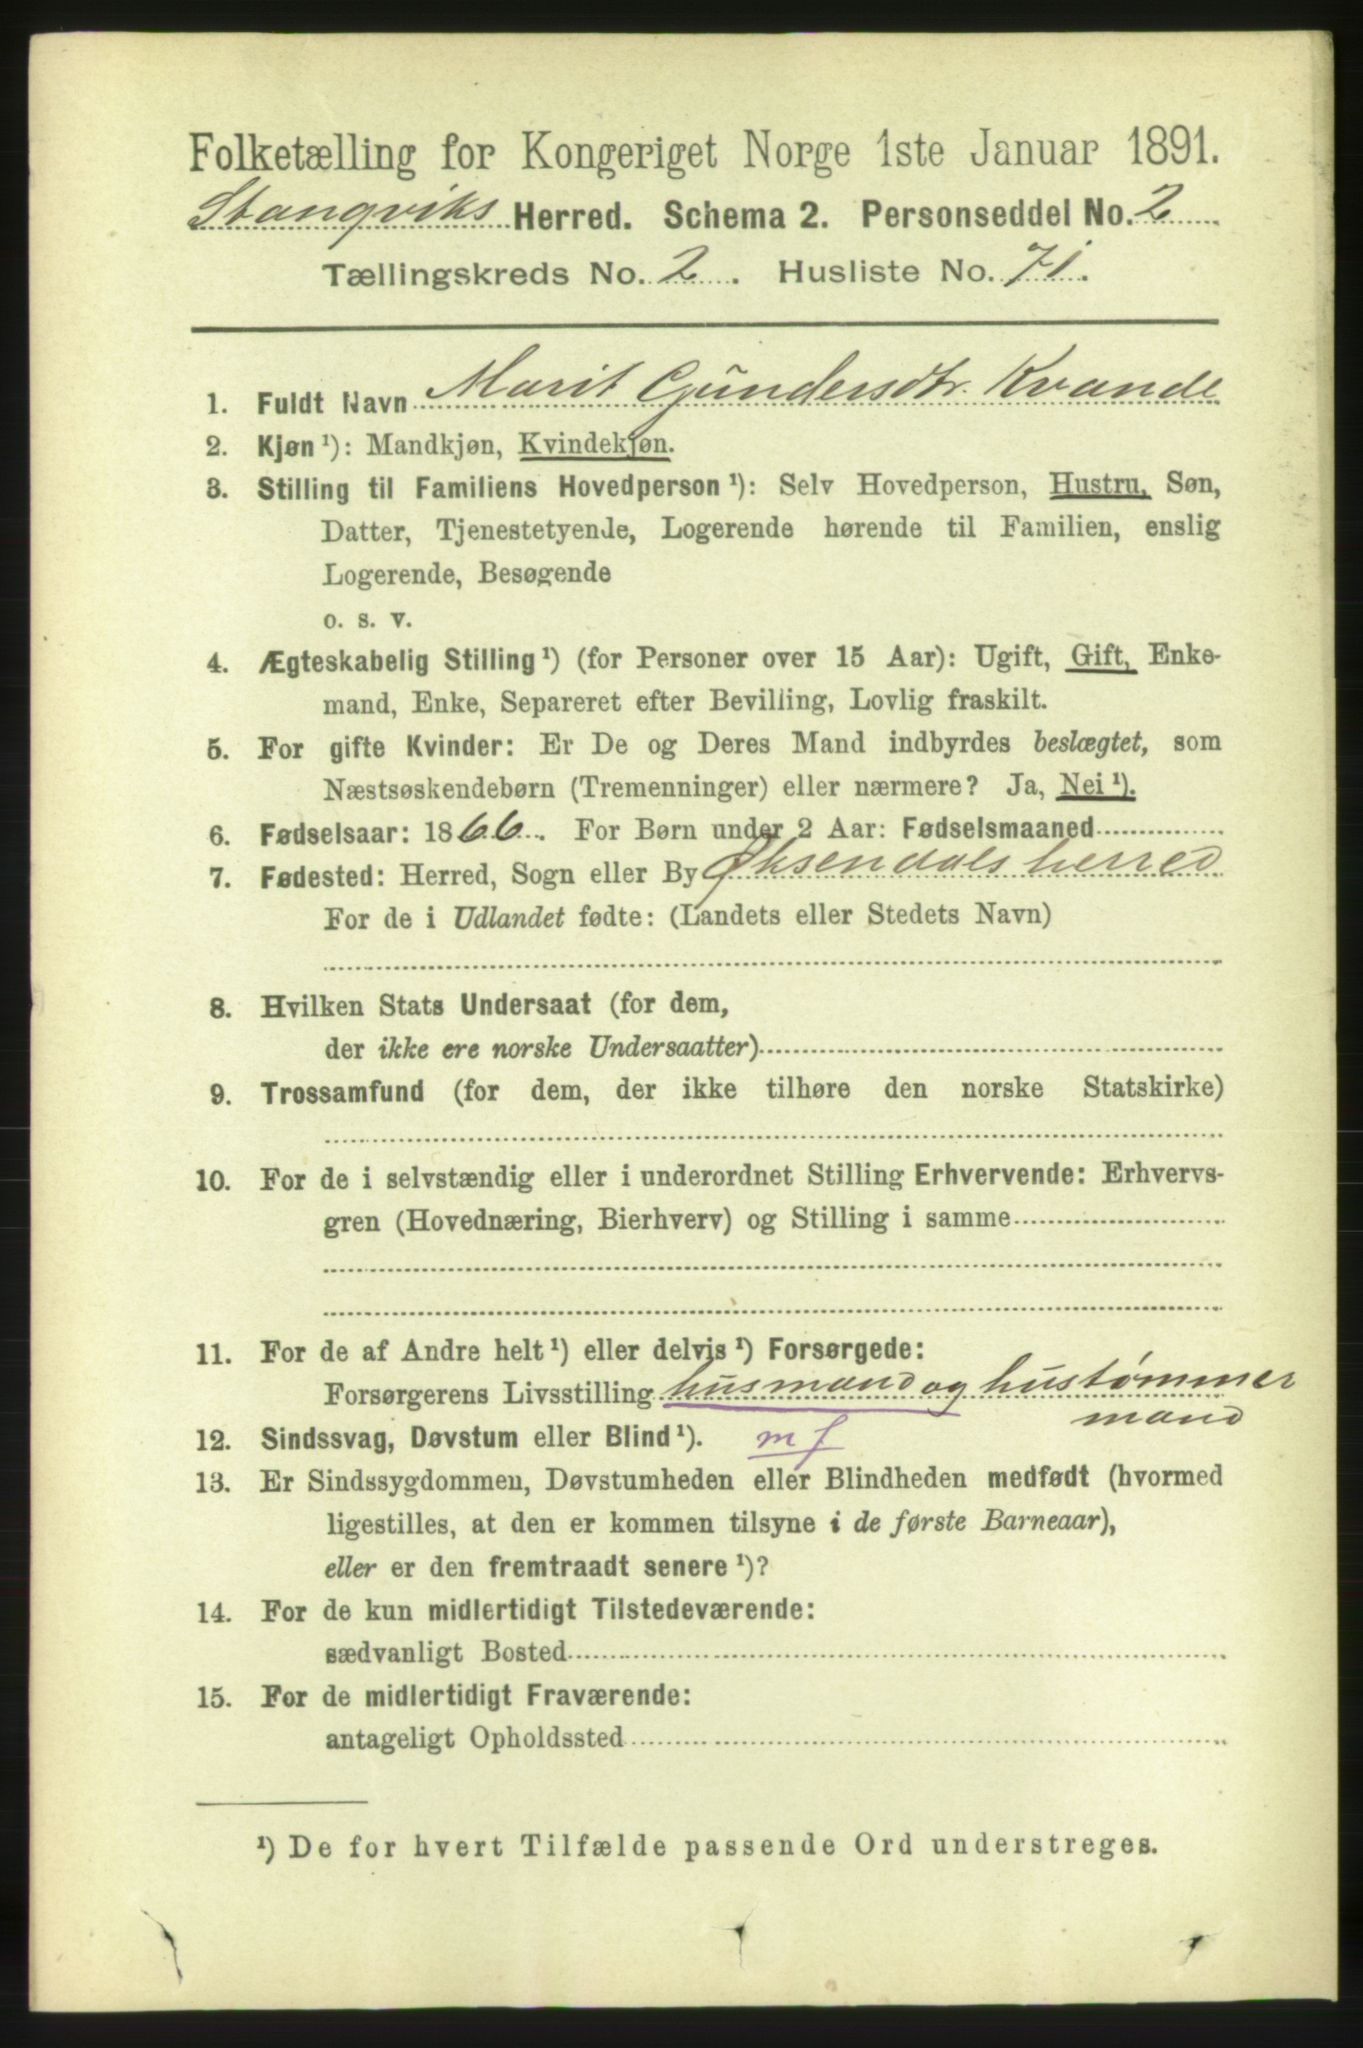 Folketælling for Kongeriget Norge 1ste Januar 1891.
Stangviks Herred. Schema 2. Personseddel No. 2
Tællingskreds No. 2. Husliste No. 71.
1. Fuldt Navn Marit Gundersdtr. Kvande
2. Kjøn ¹): Mandkjøn, Kvindekjøn.
3. Stilling til Familiens Hovedperson ¹): Selv Hovedperson, Hustru, Søn,
Datter, Tjenestetyende, Logerende hørende til Familien, enslig
Logerende, Besøgende
o. s. v.
4. Ægteskabelig Stilling ¹) (for Personer over 15 Aar): Ugift, Gift, Enke-
mand, Enke, Separeret efter Bevilling, Lovlig fraskilt.
5. For gifte Kvinder: Er De og Deres Mand indbyrdes beslægtet, som
Næstsøskendebørn (Tremenninger) eller nærmere? Ja, Nei ¹).
6. Fødselsaar: 1866. For Børn under 2 Aar: Fødselsmaaned
7. Fødested: Herred, Sogn eller By Øksendals herred
For de i Udlandet fødte: (Landets eller Stedets Navn)
8. Hvilken Stats Undersaat (for dem,
der ikke ere norske Undersaatter)
9. Trossamfund (for dem, der ikke tilhøre den norske Statskirke)
10. For de i selvstændig eller i underordnet Stilling Erhvervende: Erhvervs-
gren (Hovednæring, Bierhverv) og Stilling i samme
11. For de af Andre helt ¹) eller delvis ¹) Forsørgede:
Forsørgerens Livsstilling husmand og hustømmer
mand
12. Sindssvag, Døvstum eller Blind ¹). mf
13. Er Sindssygdommen, Døvstumheden eller Blindheden medfødt (hvormed
ligestilles, at den er kommen tilsyne i de første Barneaar),
eller er den fremtraadt senere ¹)?
14. For de kun midlertidigt Tilstedeværende:
sædvanligt Bosted
15. For de midlertidigt Fraværende:
antageligt Opholdssted
¹) De for hvert Tilfælde passende Ord understreges.